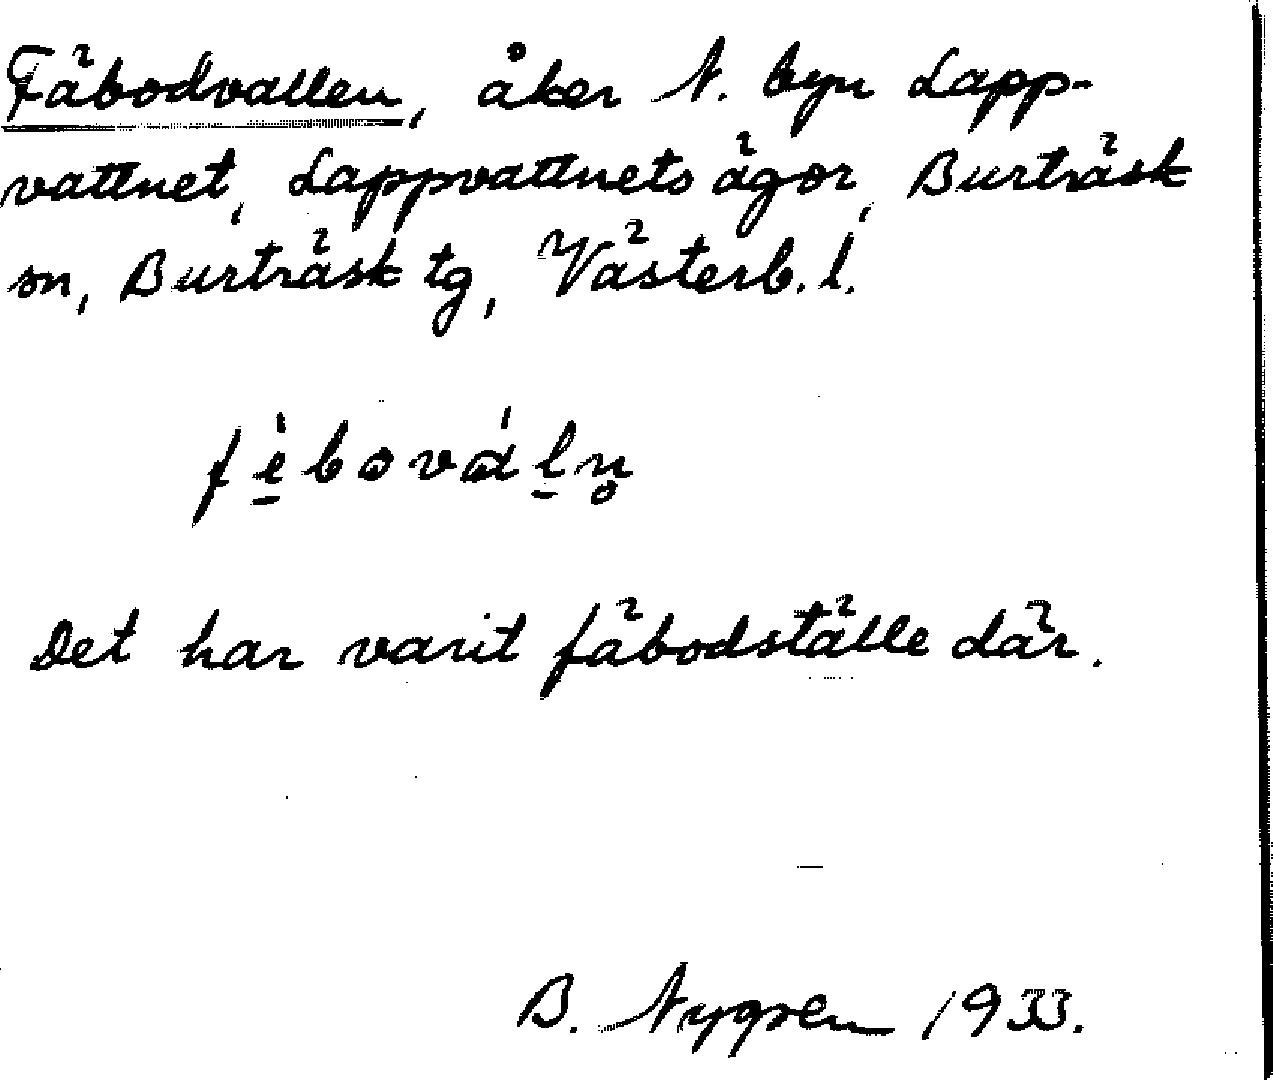 Fäbodvallen, åker N. byn Lapp-
vattnet, Lappvattnets ägor, Burträsk
sn, Burträsk tg, Västerb. l.
fè̱bovɑ́ḻn̥
Det har varit fäbodställe där.
B. Nygren 1933.